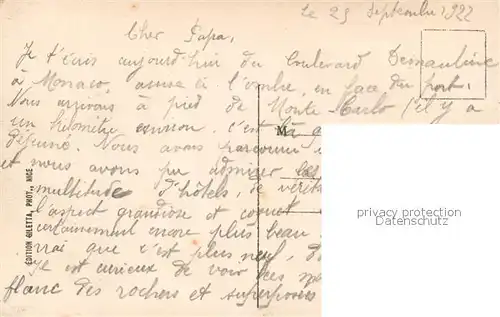 Le 25 Septembre 1922
Cher Papa,
Je t'écris aujourd'hui du boulevard
à Monaco, assise à l'ombre, en face du port.
Nous arrivons à pied de Monte-Carlo (il y a
un kilomètre environ. c'est là
déjeuné. Nous avons parcouru
et nous avons pu admirer les
multitude d'hôtels, de
l'aspect grandiose et coquet
certainement encore plus beau.
vrai que c'est plus neuf,
Je est curieux de voir ces
flanc des rochers et superposées
M
ÉDITION GILETTA, PHOT., NICE
privacy protection
www.oldthing.de